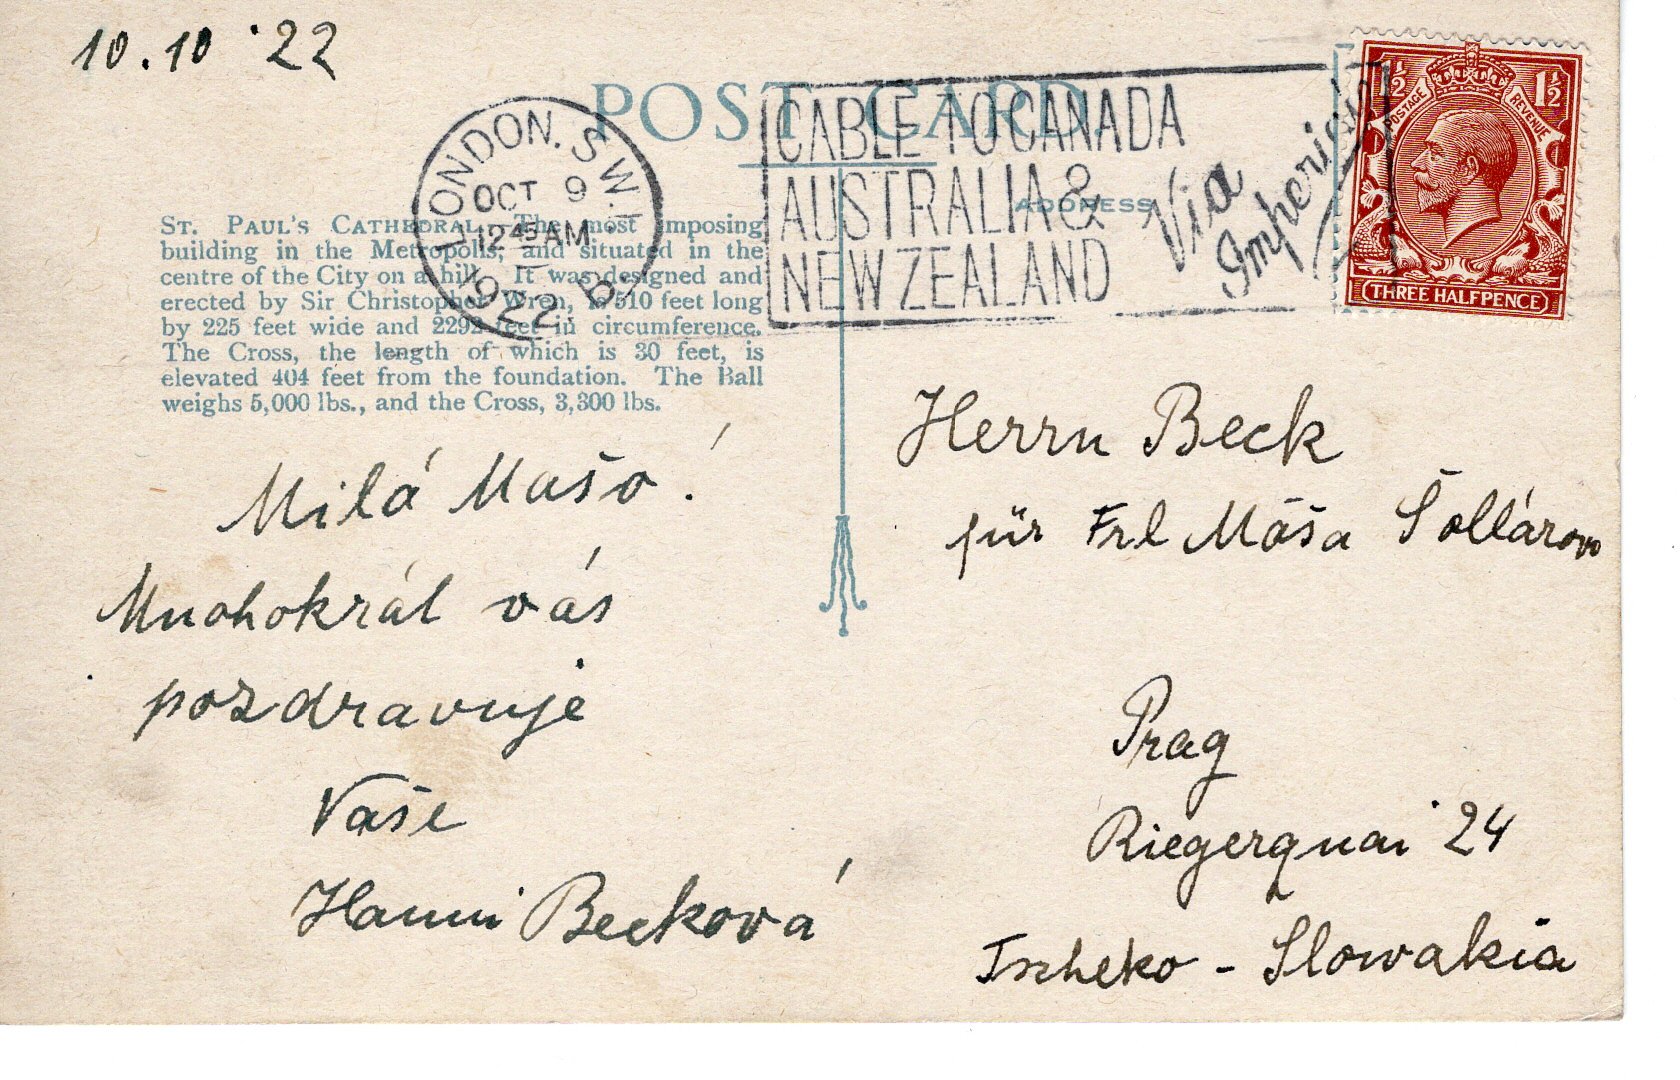 10.10 '22
POST CARD.
LONDON. S.W.1
OCT 9
1245AM
1922 B
CABLE TO CANADA
AUSTRALIA &
NEW ZEALAND
Via
Imperial
1½ 1½
POSTAGE REVENUE
THREE HALFPENCE
ADDRESS
ST. PAUL'S CATHEDRAL.—The most imposing
building in the Metropolis, and situated in the
centre of the City on a hill. It was designed and
erected by Sir Christopher Wren, is 510 feet long
by 225 feet wide and 2292 feet in circumference.
The Cross, the length of which is 30 feet, is
elevated 404 feet from the foundation. The Ball
weighs 5,000 lbs., and the Cross, 3,300 lbs.
Milá Mášo!
Mnohokrát vás
pozdravuje
Vaše
Hanni Becková
Herrn Beck
für Frl Máša Šollárovo
Prag
Riegerquai 24
Tscheko - Slowakia